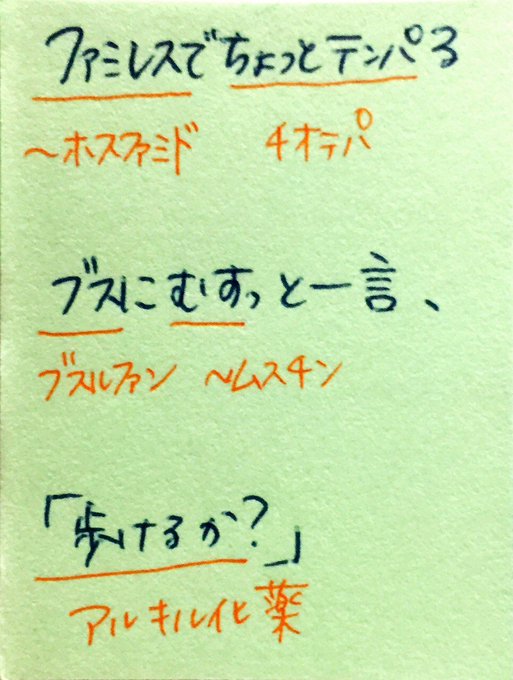 ファミレスでちょっとテンパる
〜ホスファミド チオテパ
ブスにむすっと一言、
ブスルファン 〜ムスチン
「歩けるか?」
アルキル化薬